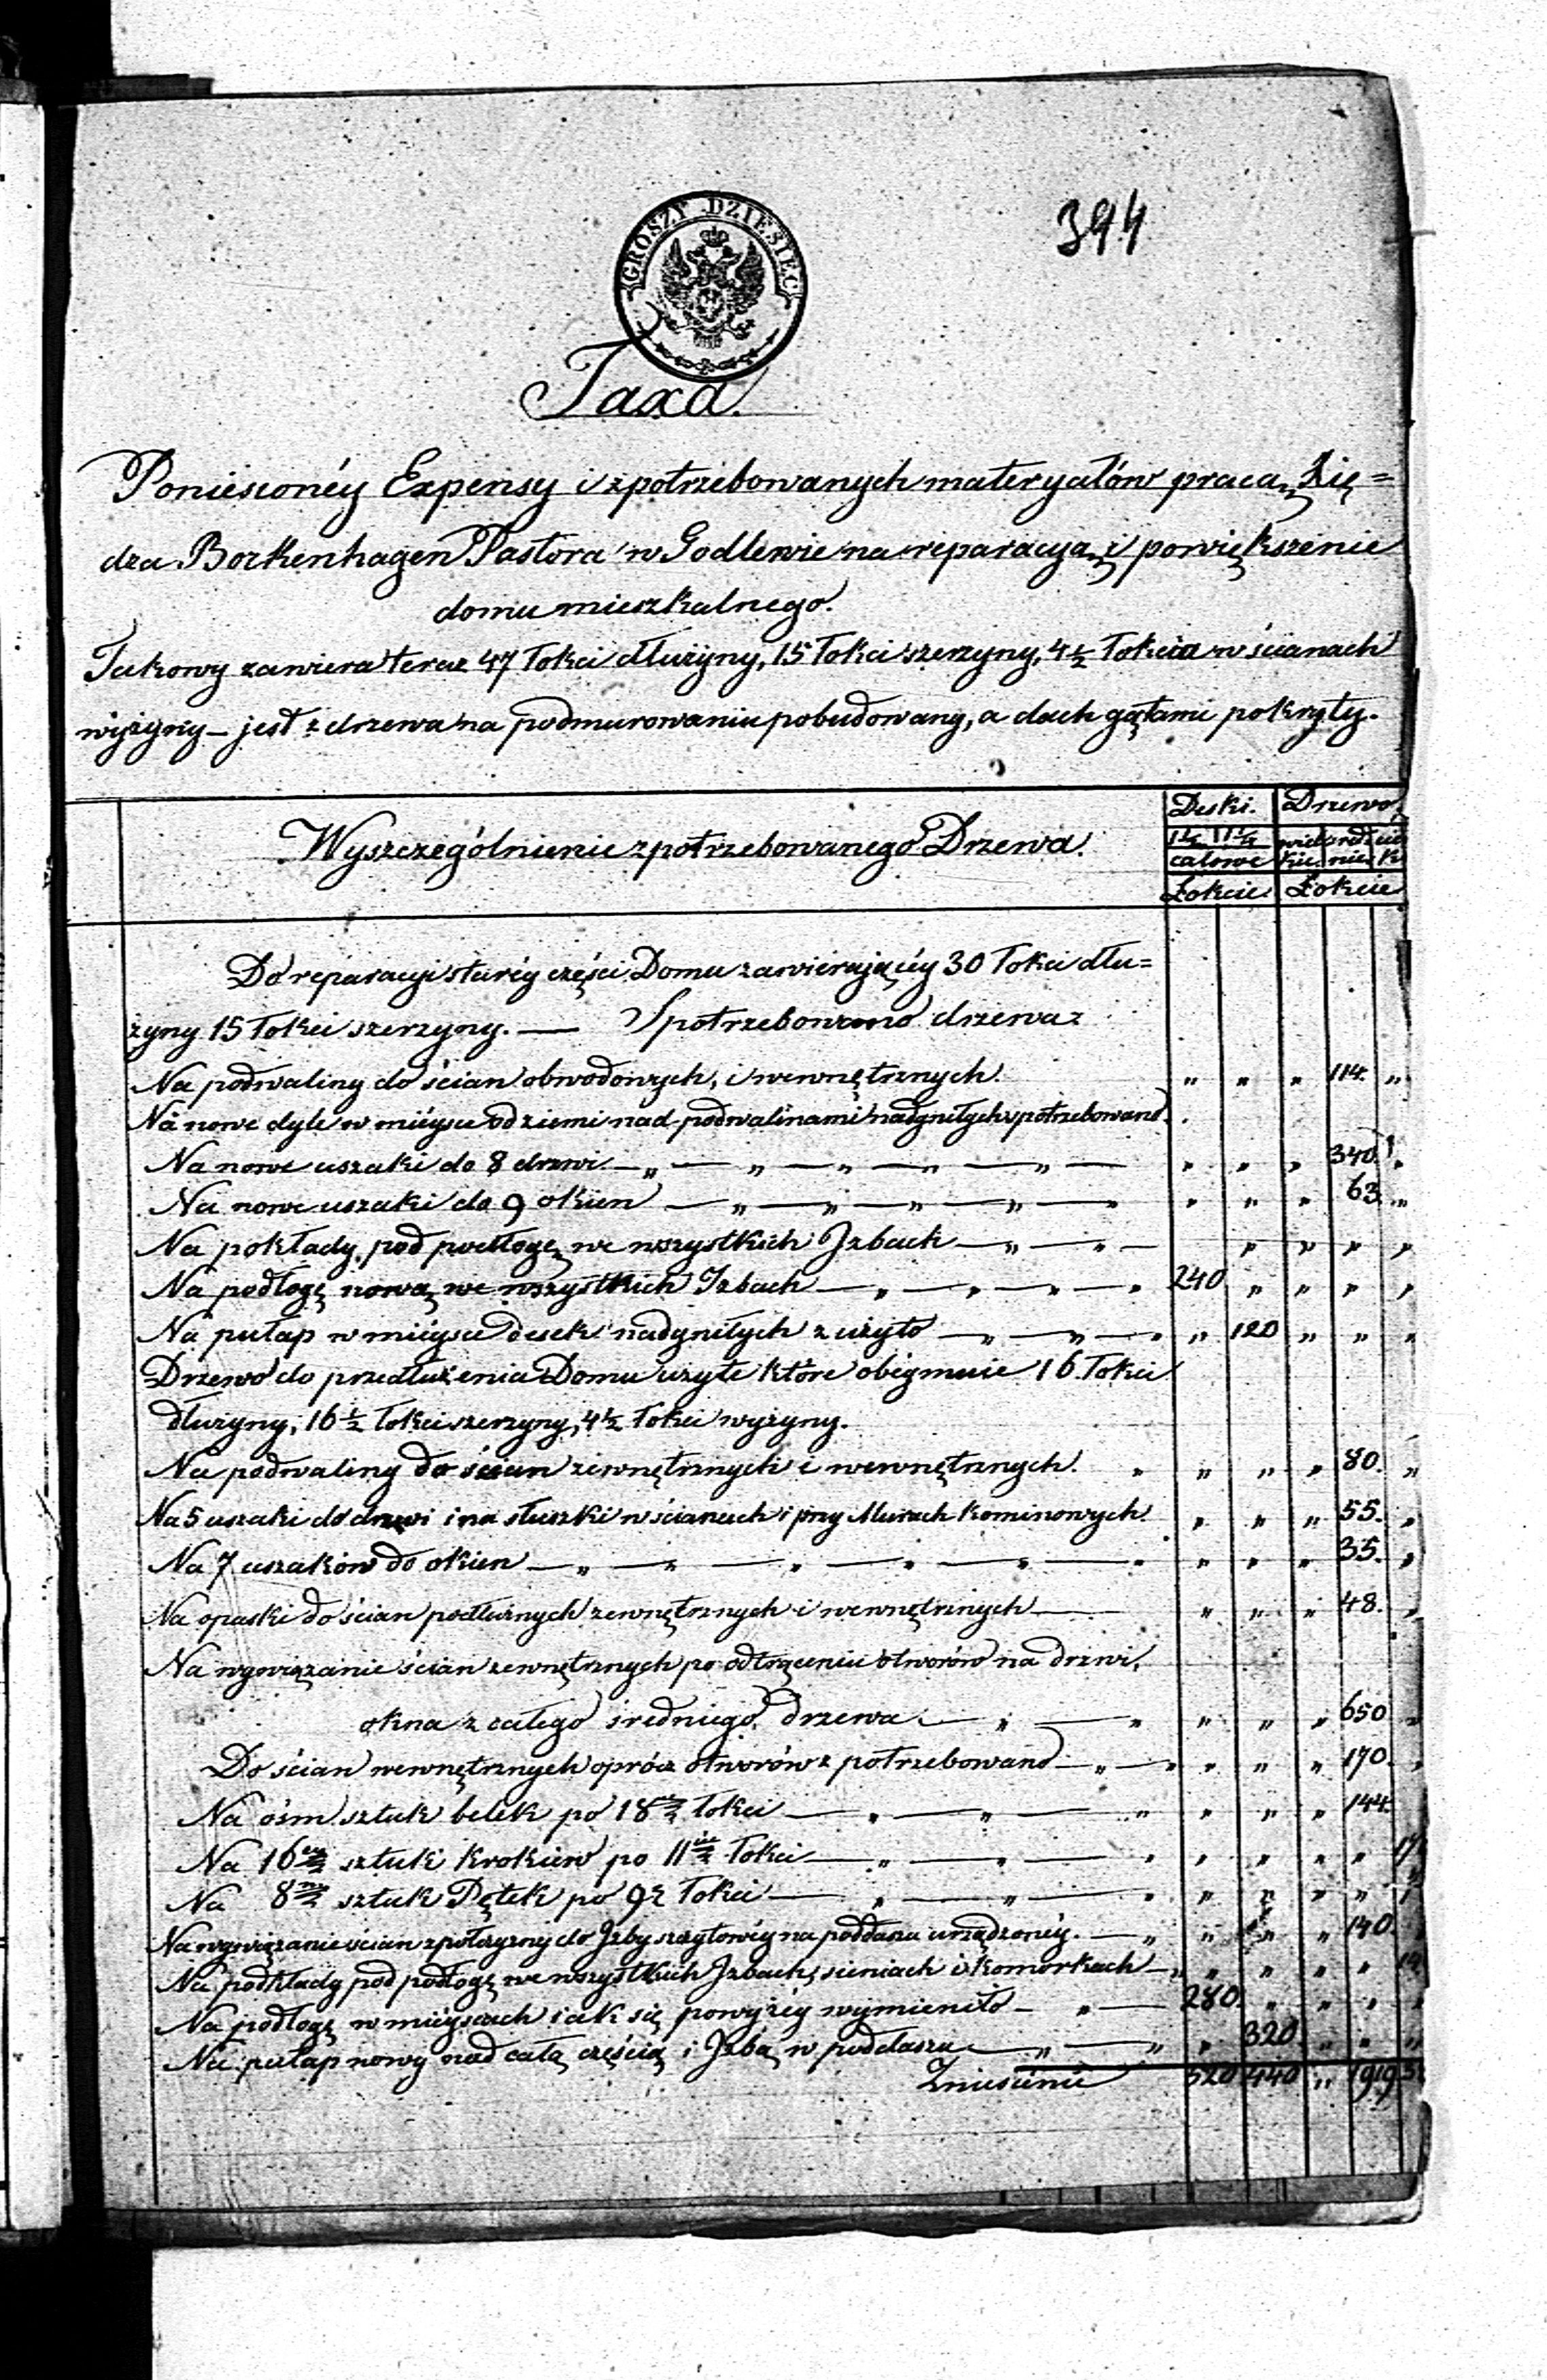 394
GROSZY DZIESIEC
Taxa.
Poniesionéy Expensy i zpotrzebowanych materyałów pracą Xię=
dza Borkenhagen Pastora w Godlewie na reparacyą i powiększenie
domu mieszkalnego.
Takowy zawiera teraz 47 łokci dłużyny, 15 łokci szerzyny, 4½ łokcia w ścianach
wyżyny – jest z drzewa na podmurowaniu pobudowany, a dach gątami pokryty.
Wyszczególnienie zpotrzebowanego Drzewa. Deski. Drzewo
1½ 1¼ wiel śred
calowe kie nie
Łokcie Łokcie
Do reparacyi staréy części Domu zawierającéy 30 łokci dłu=
żyny 15 łokci szerzyny. — Spotrzebowano drzewa:
Na podwaliny do ścian obwodowych, i wewnętrznych. " " " 114. "
Na nowe dyle w mieysce od ziemi nad podwalinami nadgniłych spotrzebowano.
Na nowe uszaki do 8 drzwi — " — " — " — " — " — " " " 340. "
Na nowe uszaki do 9 okien — " — " — " — " — " " " " 63. "
Na pokłady pod podłogę we wszystkich Izbach — " — " — " " " "
Na podłogę nową we wszystkich Izbach — " — " — " — " 240 " " " "
Na pułap w mieysce desek nadgniłych z użyto — " — " — " " 120 " " "
Drzewo do przedłużenia Domu użyte które obéymuie 16 łokci
dłużyny, 16½ łokci szerzyny, 4½ łokci wyżyny.
Na podwaliny do ścian zewnętrznych i wewnętrznych. " " " " 80. "
Na 5 uszaki do drzwi i na słuszki w ścianach i przy Murach kominowych " " " 55. "
Na 7 uszaków do okien — " — " — " — " — " — " " " " 35. "
Na opaski do ścian podłużnych zewnętrznych i wewnętrznych — " " " 48. "
Na wywiązanie ścian zewnętrznych po odtrąceniu otworów na drzwi,
okna z całego średniego drzewa — " — " " " " 650 "
Do ścian wewnętrznych oprócz otworów z potrzebowano — " — " " " " 170. "
Na óśm sztuk belek po 18 łokci — " — " — " " " " 144.
Na 16 sztuk krokiew po 11 łokci — " — " — " " " " " 17
Na 8 sztuk Pętek po 9½ łokci — " — " — " " " " "
Na wywiązanie ścian zpołażyny do Izby szczytowéy na poddaszu urządzonéy. — " " " " 140.
Na podkłady pod podłogę we wszystkich Izbach, sieniach i komórkach — " " " " " 14
Na podłogę w mieyscach iak się powyżéy wymieniło — " — 280. " " " "
Na pułap nowy nad całą częścią i Izbą w poddaszu — " — " " 320 " " "
Zniesienie 520 440 " 1919